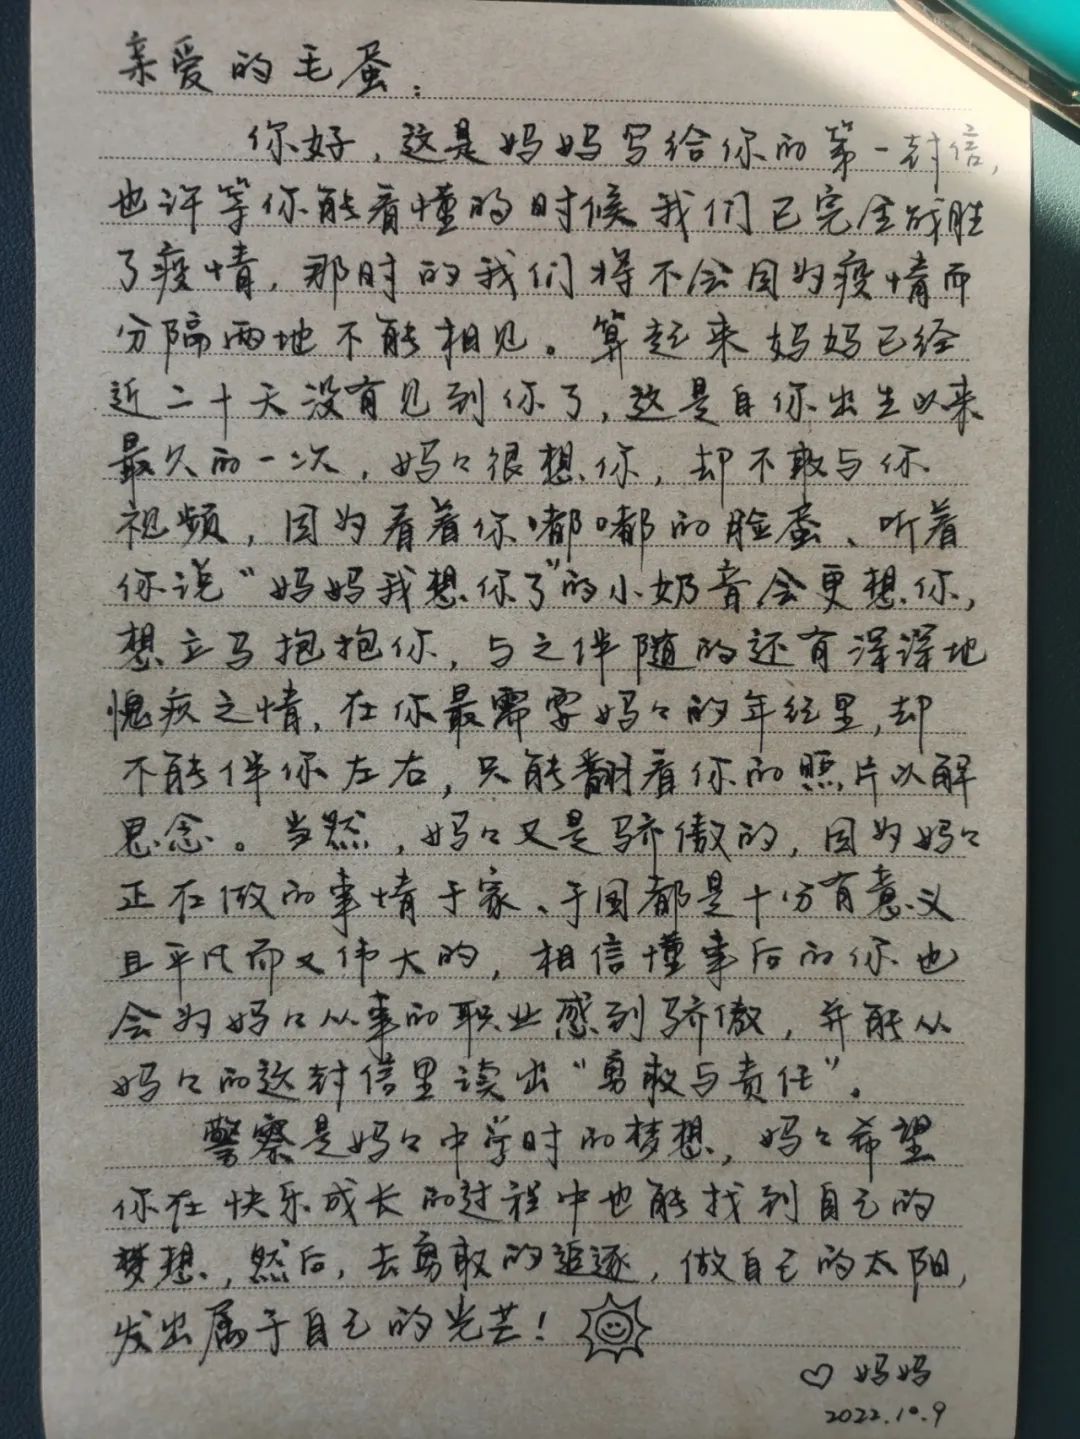 亲爱的毛蛋：
你好，这是妈妈写给你的第一封信，
也许等你能看懂的时候我们已完全战胜
了疫情，那时的我们将不会因为疫情而
分隔两地不能相见。算起来妈妈已经
近二十天没有见到你了，这是自你出生以来
最久的一次，妈々很想你，却不敢与你
视频，因为看着你嘟嘟的脸蛋、听着
你说“妈妈我想你了”的小奶音会更想你，
想立马抱抱你，与之伴随的还有深深地
愧疚之情，在你最需要妈々的年纪里，却
不能伴你左右，只能翻看你的照片以解
思念。当然，妈々又是骄傲的，因为妈々
正在做的事情于家、于国都是十分有意义
且平凡而又伟大的，相信懂事后的你也
会为妈々从事的职业感到骄傲，并能从
妈々的这封信里读出“勇敢与责任”。
警察是妈々中学时的梦想，妈々希望
你在快乐成长的过程中也能找到自己的
梦想，然后，去勇敢的追逐，做自己的太阳，
发出属于自己的光芒！
♡妈妈
2022.10.9